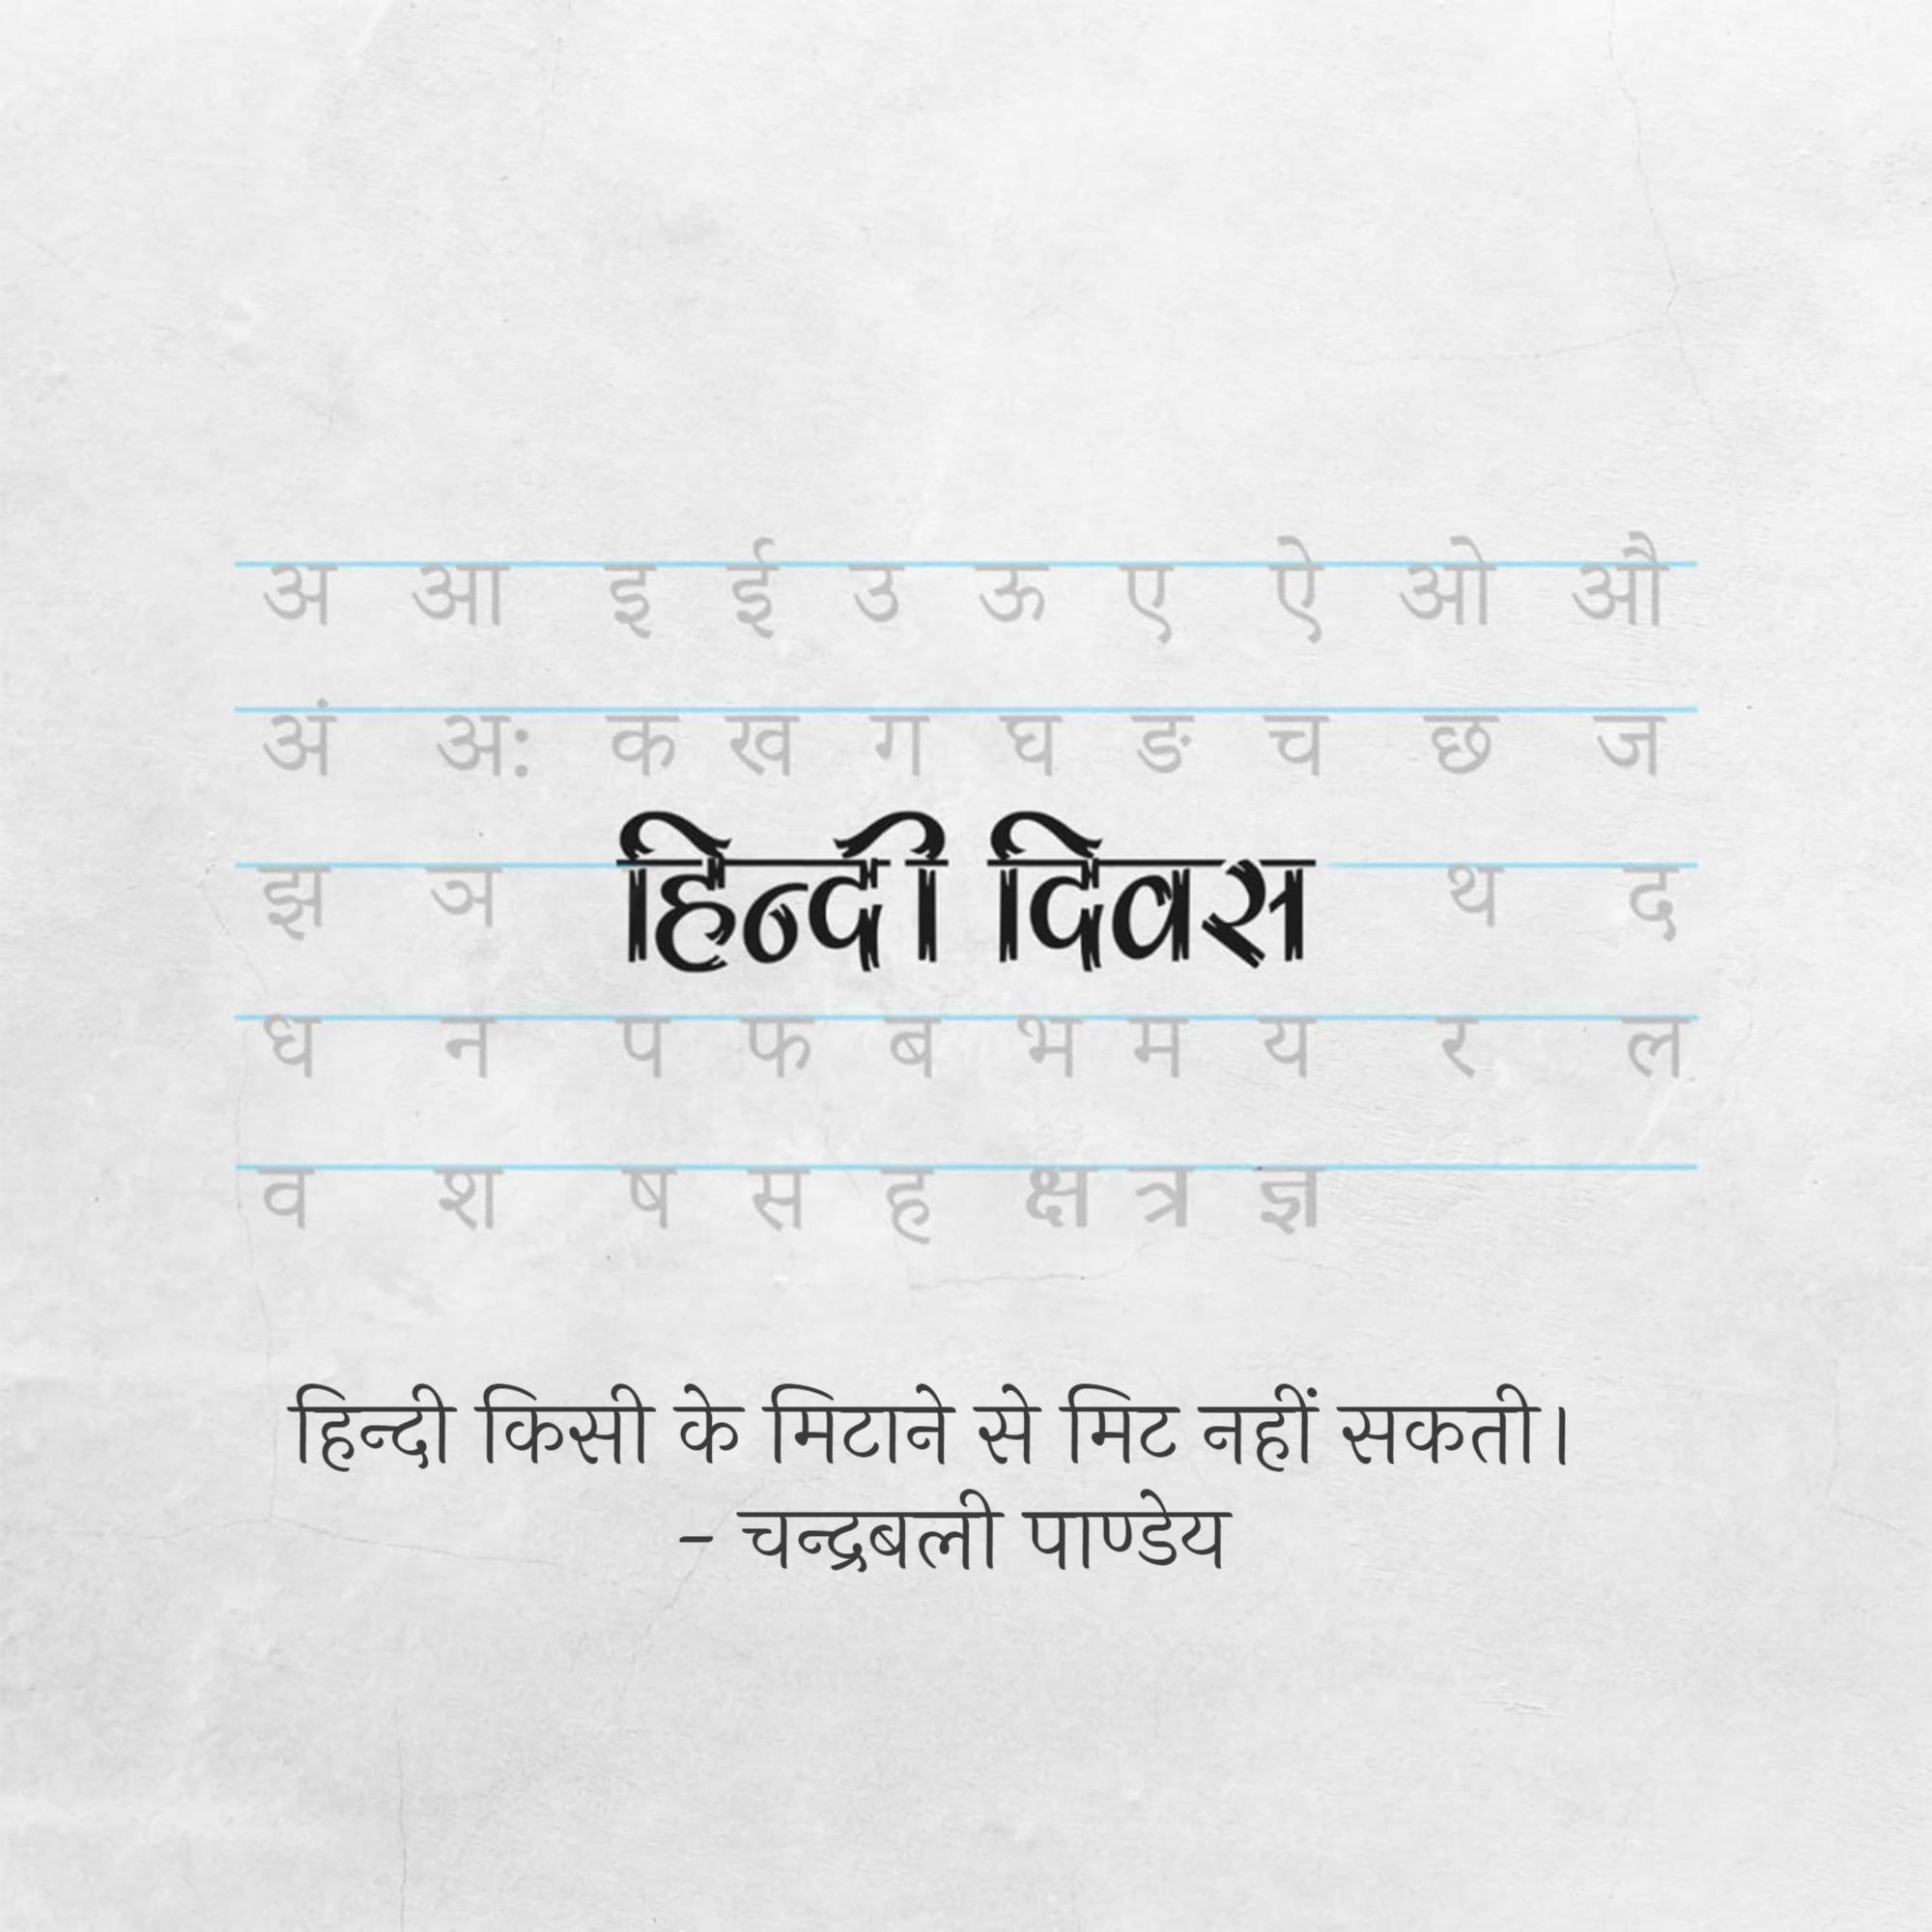 अ आ इ ई उ ऊ ए ऐ ओ औ
अं अः क ख ग घ ङ च छ ज
झ ञ हिन्दी दिवस थ द
ध न प फ ब भ म य र ल
व श ष स ह क्ष त्र ज्ञ
हिन्दी किसी के मिटाने से मिट नहीं सकती।
- चन्द्रबली पाण्डेय